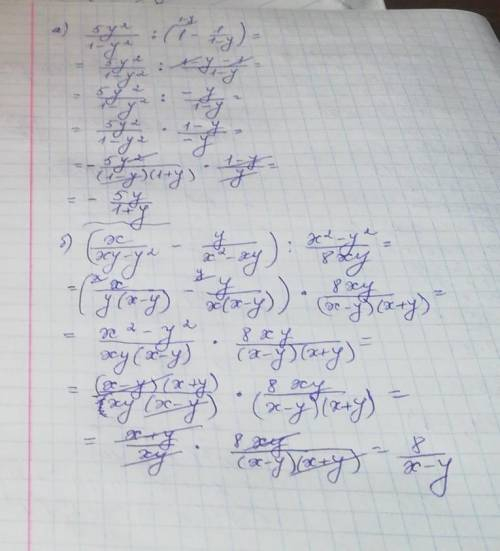 а) 5y²/(1-y²) : (1 - 1/(1-y)) =
= 5y²/(1-y²) : (1-y-1)/(1-y) =
= 5y²/(1-y²) : -y/(1-y) =
= 5y²/(1-y²) · (1-y)/(-y) =
= - 5y²/((1-y)(1+y)) · (1-y)/y =
= - 5y/(1+y)
б) (x/(xy-y²) - y/(x²-xy)) : (x²-y²)/(8xy) =
= (x/(y(x-y)) - y/(x(x-y))) · 8xy/((x-y)(x+y)) =
= (x²-y²)/(xy(x-y)) · 8xy/((x-y)(x+y)) =
= (x-y)(x+y)/(xy(x-y)) · 8xy/((x-y)(x+y)) =
= (x+y)/(xy) · 8xy/((x-y)(x+y)) = 8/(x-y)